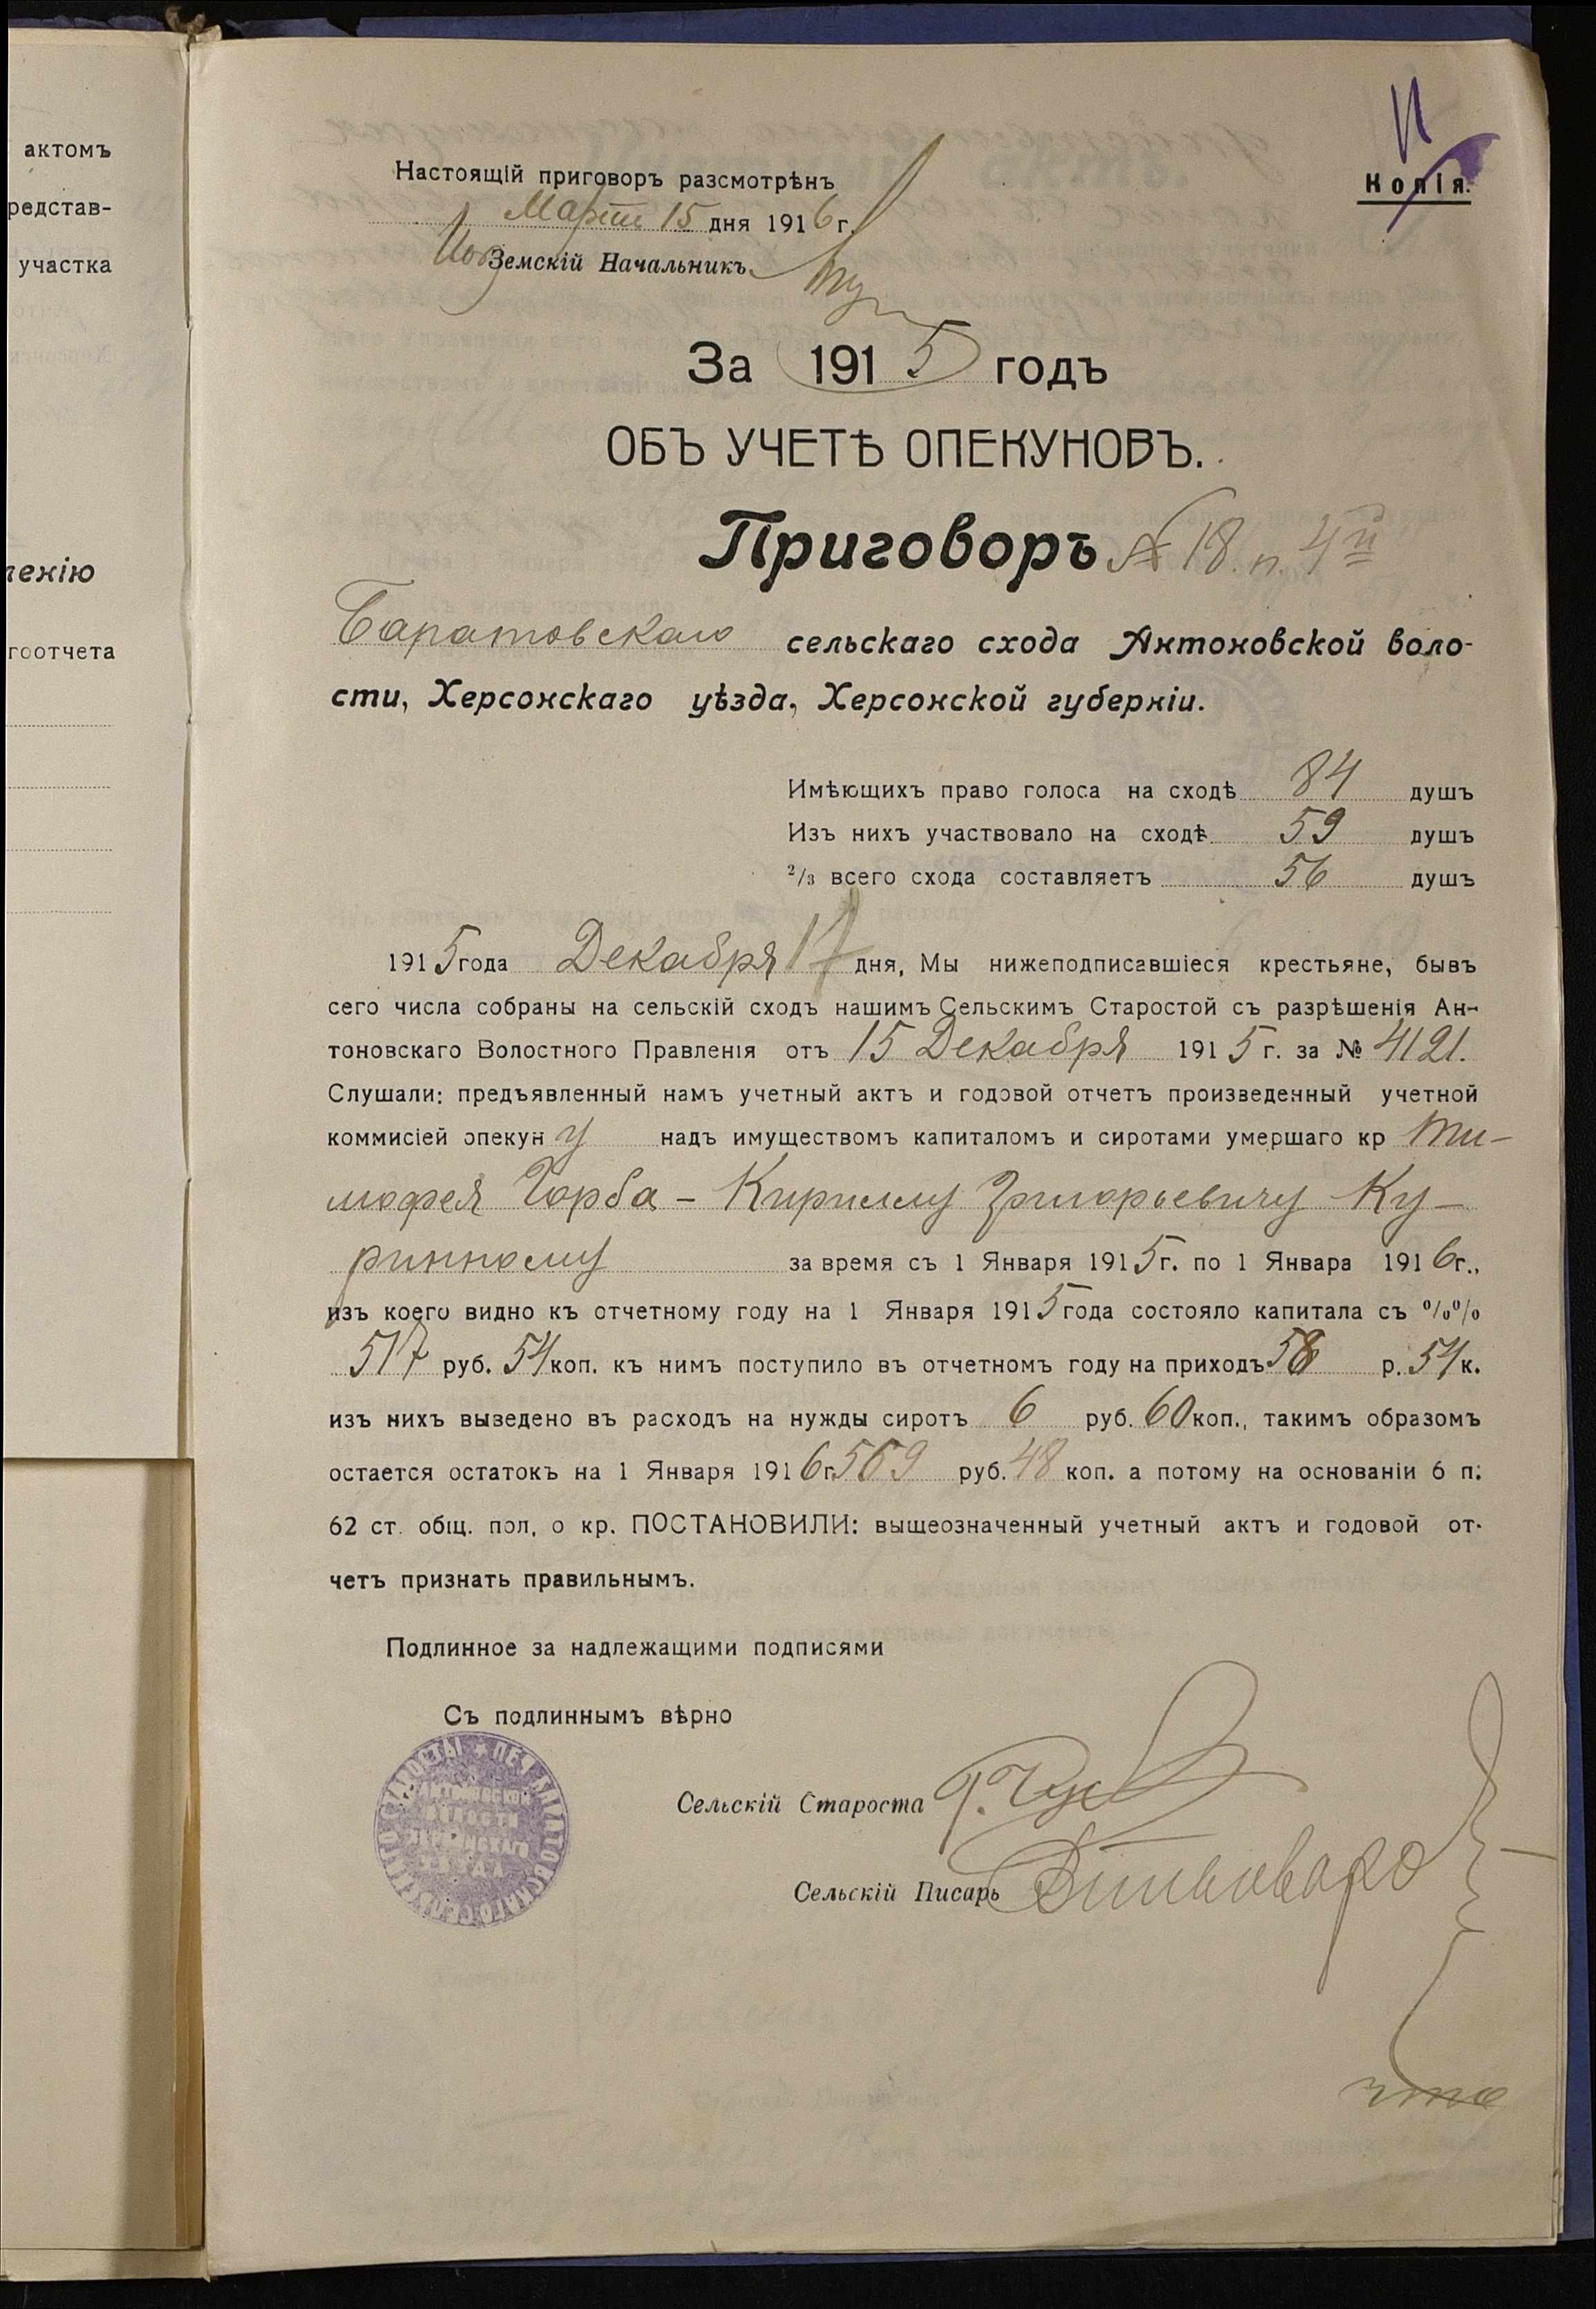 актомъ
редстав-
участка
ленію
гоотчета
Копія.
Настоящій приговоръ разсмотрѣнъ
Марта 15 дня 1916 г.
Земскій Начальникъ
За 1915 годъ
ОБЪ УЧЕТѢ ОПЕКУНОВЪ.
Приговоръ № 18. п. 4й
Баратовскаго сельскаго схода Антоновской воло-
сти, Херсонскаго уѣзда, Херсонской губерніи.
Имѣющихъ право голоса на сходѣ 84 душъ
Изъ нихъ участвовало на сходѣ 59 душъ
2/3 всего схода составляетъ 56 душъ
1915 года Декабря 17 дня, Мы нижеподписавшіеся крестьяне, бывъ
сего числа собраны на сельскій сходъ нашимъ Сельскимъ Старостой съ разрѣшенія Ан-
тоновскаго Волостного Правленія отъ 15 Декабря 1915 г. за № 4121.
Слушали: предъявленный намъ учетный актъ и годовой отчетъ произведенный учетной
коммисіей опекуну надъ имуществомъ капиталомъ и сиротами умершаго кр Ти-
мофея Горба - Кириллу Григорьевичу Ку-
ринному за время съ 1 Января 1915 г. по 1 Января 1916 г.,
изъ коего видно къ отчетному году на 1 Января 1915 года состояло капитала съ %%
517 руб. 54 коп. къ нимъ поступило въ отчетномъ году на приходъ 58 р. 54 к.
изъ нихъ выведено въ расходъ на нужды сиротъ 6 руб. 60 коп., такимъ образомъ
остается остатокъ на 1 Января 1916 г. 569 руб. 48 коп. а потому на основаніи 6 п.
62 ст. общ. пол, о кр. ПОСТАНОВИЛИ: вышеозначенный учетный актъ и годовой от-
четъ признать правильнымъ.
Подлинное за надлежащими подписями
Съ подлиннымъ вѣрно
Сельскій Староста
Сельскій Писарь